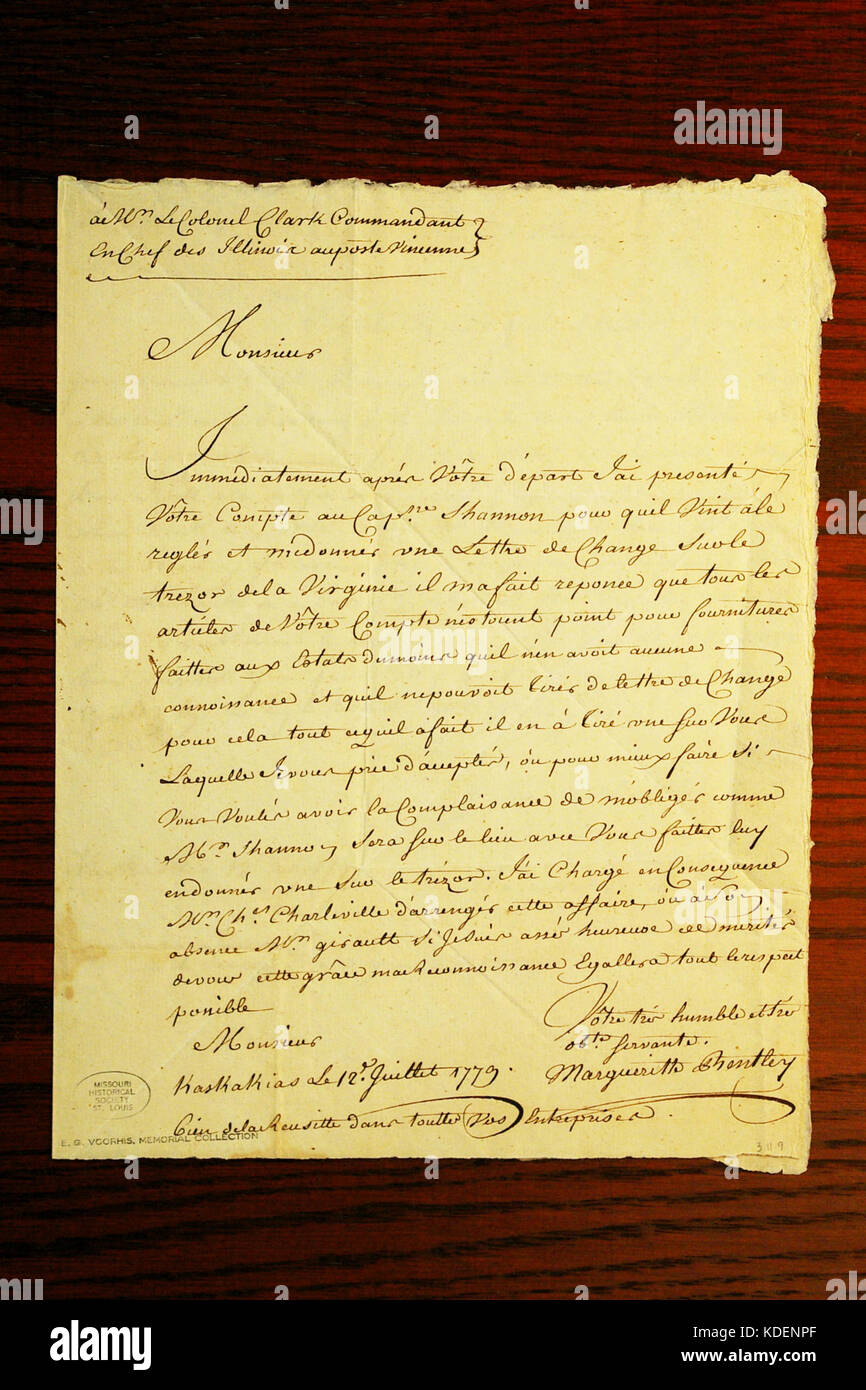 à Mr. Le Colonel Clark Commandant
En Chef des Illinois au poste Vincenne
Monsieur
Immédiatement aprés Vôtre départ J'ai presenté
Vôtre Compte au Capne. Shannon pour quil Vint à le
reglés et me donnés une Lettre de Change sur le
trezor de la Virginie il ma fait reponce que tous les
articles de Vôtre Compte nétoient point pour fournitures
faittes aux Estats du moins quil n'en avoit aucune
connoissance et quil ne pouvoit tirés de lettre de Change
pour cela tout ce quil à fait il en à tiré une sur Vous
Laquelle Je vous prie d'acceptés, ou pour mieux faire si
Vous Voulés avoir la Complaisance de m'obligés comme
Mr. Shannon Sera sur le lieu avec Vous faittes luy
en donnés une sur le trézor. J'ai Chargé en Consequence
Mr. Chs. Charleville d'arrengés cette affaire, ou à son
absence Mr. girault si Je suis assé heureuse de merités
de vous cette grâce ma Reconnoissance Egallera tout le respect
possible
Monsieur
Vôtre tré humble et tré
obte. servante.
Kaskakias Le 12e. Juillet 1779.
Margueritte Bentley
bien de la Reussitte dans toutte Vos Entreprises.
MISSOURI
HISTORICAL
SOCIETY
ST. LOUIS
E. G. VOORHIS. MEMORIAL COLLECTION
alamy
Image ID: KDENPF
www.alamy.com